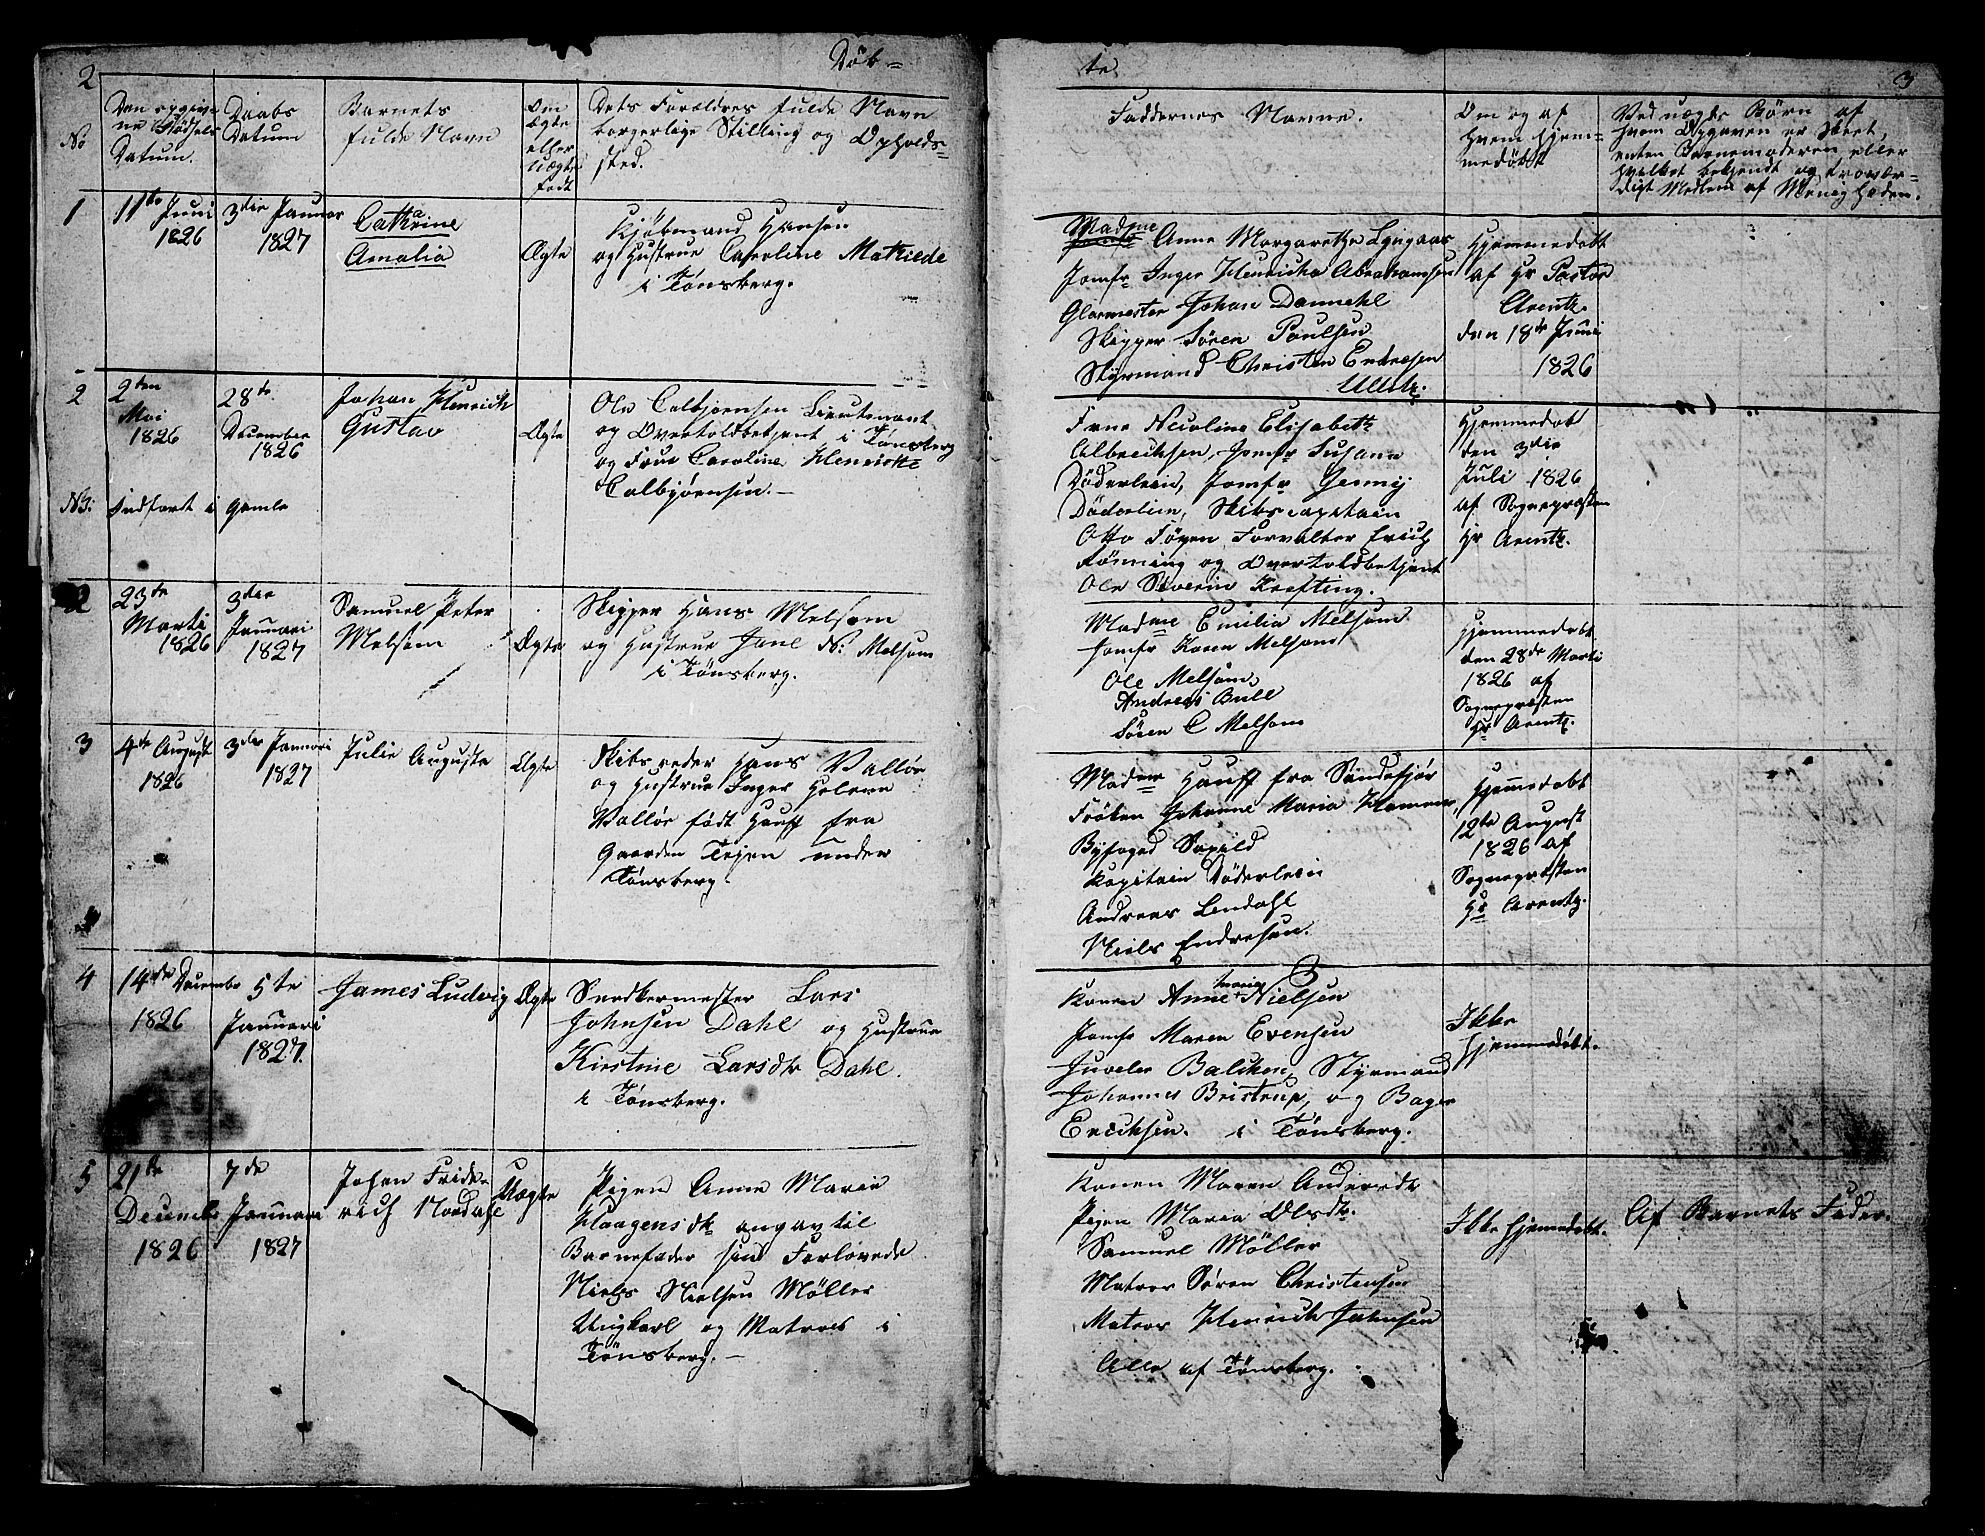 2
Døb=
No
Den opgiv-
ne Fødsels
Datum.
Daabs
Datum
Barnets
fulde Navn
Om
ægte
eller
uægte
født
Dets Forældres fulde Navn
borgerlige Stilling og Opholds=
sted.
1
11te Juni
1826
3die Januar
1827
Cathrine
Amalia
Ægte
Kjøbmand Hansen
og Hustrue Caroline Mathilde
i Tønsberg.
2
2den
Mai
1826
28de
December
1826
Johan Henrich
Gustav
Ægte
Ole Colbjørnsen Lieutenant
og Overtoldbetjent i Tønsberg
og Frue Caroline Henriette
Colbjørnsen.—
NB: Indført i gamle
2
23de
Marti
1826
3die
Januari
1827
Samuel Peter
Melsom
Ægte
Skipper Hans Melsom
og Hustrue Jane N: Melsom
i Tønsberg.
3
4de August
1826
3die Januari
1827
Julie Auguste
Ægte
Skibsreder Hans Valløe
og Hustrue Inger Helene
Valløe født Hauff fra
Gaarden Tejen under
Tønsberg.
4
14de Decembr
1826
5te
Januari
1827.
James Ludvig
Ægte
Snedkermester Lars
Johnsen Dahl og Hustrue
Kirstine Larsdtr Dahl.
i Tønsberg.
5
21de
Decembr
1826
7de
Januari
1827
Johan Fride-
rich Nordahl
Uægte
Pigen Anne Marie
Haagensdtr angav til
Barnefader sin Forlovede
Niels Nielsen Møller
Ungkarl og Matros i
Tønsberg.—
te.
3
Faddernes Navne.
Om og af
hvem hjem-
medøbt
Ved uægte Børn af
hvem Opgaven er skeet,
enten Barnemoderen eller
hvilket bekjendt og trovær-
digt Medlem af Menigheden.
Madme Anne Margarethe Lyngaas
Jomfr Inger Henricha Abrahamsen
Glarmester Johan Dannehl
Skipper Søren Poulsen
Styrmand Christen Endresen
Hjemmedøbt
af Hr Pastor
Arentz.
den 18de Juni
1826
Frue Nicoline Elisabeth
Albrechsen, Jomfr Susanna
Døderlein, Jomfr Jenny
Døderlein, Skibscapitain
Otto Føyen Forvalter Erich
Rønning og Overtoldbetjent
Ole Severin Krefting.
Hjemmedøbt
den 3die
Juli 1826
af Sognepræsten
Hr Arentz.
Madme Emilia Melsom
Jomfr Karen Melsom
Ole Melsom,
Andreas Bull
Søren C Melsom
Hjemmedøbt
den 28de Marti
1826 af
Sognepræsten
Hr Arentz.
Madme Hauff fra Sandefjor
Frøken Johanne Maria
Byfoged
Kapitain Døderlein
Andreas Lendahl
Niels Endresen.
Hjemedøbt
12te August
1826 af
Sognepræsten
Hr Arentz.
Konen Anne Maria Nielsen
Jomfr Maren Evensen
Juveler Balchen, Styrmand
Johannes Bristrup, og Bager
Erichsen. i Tønsberg.
Ikke
hjemmedøbt.
Konen Maren Andersdtr
Pigen Maria Olsdtr.
Samuel Møller
Matros Søren Christensen
Matros Henrich Johnsen
Alle af Tønsberg.
Ikke hjemedøbt.
Af Barnets Fader.